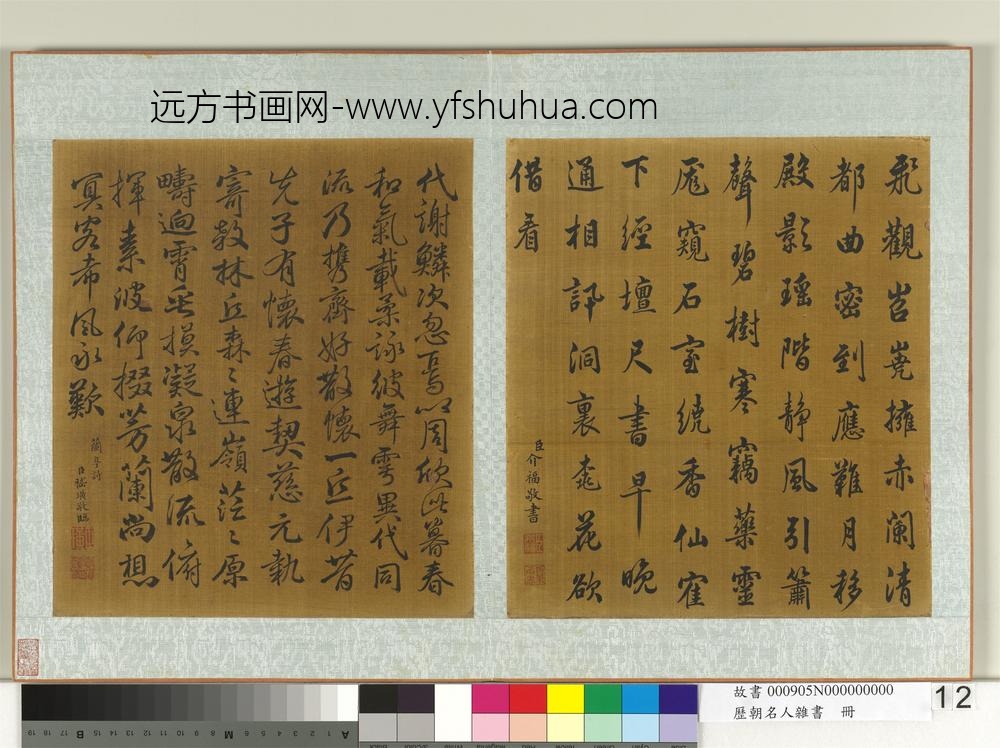 远方书画网-www.yfshuhua.com
飛觀岧嶤擁赤闌清
都曲密到應難月移
殿影瑤階靜風引簫
聲碧樹寒竊藥靈
厖窺石室繞香仙寉
下經壇尺書早晚
通相訊洞裏桃花欲
借看
臣介福敬書
代謝鱗次忽焉以周欣此暮春
和氣載柔詠彼舞雩異代同
流乃携齊好散懷一丘伊昔
先子有懷春遊契慈元執
寄敖林丘森々連嶺茫々原
疇逈霄垂摸凝泉散流俯
揮素波仰掇芳蘭尚想
冥客希風永歎
蘭亭詩
臣嵇璜敬臨
故書 000905N000000000
歷朝名人雜書 冊
12
19 18 17 16 15 B 14 13 12 11 10 9 8 7 M 6 5 4 3 2 1 A